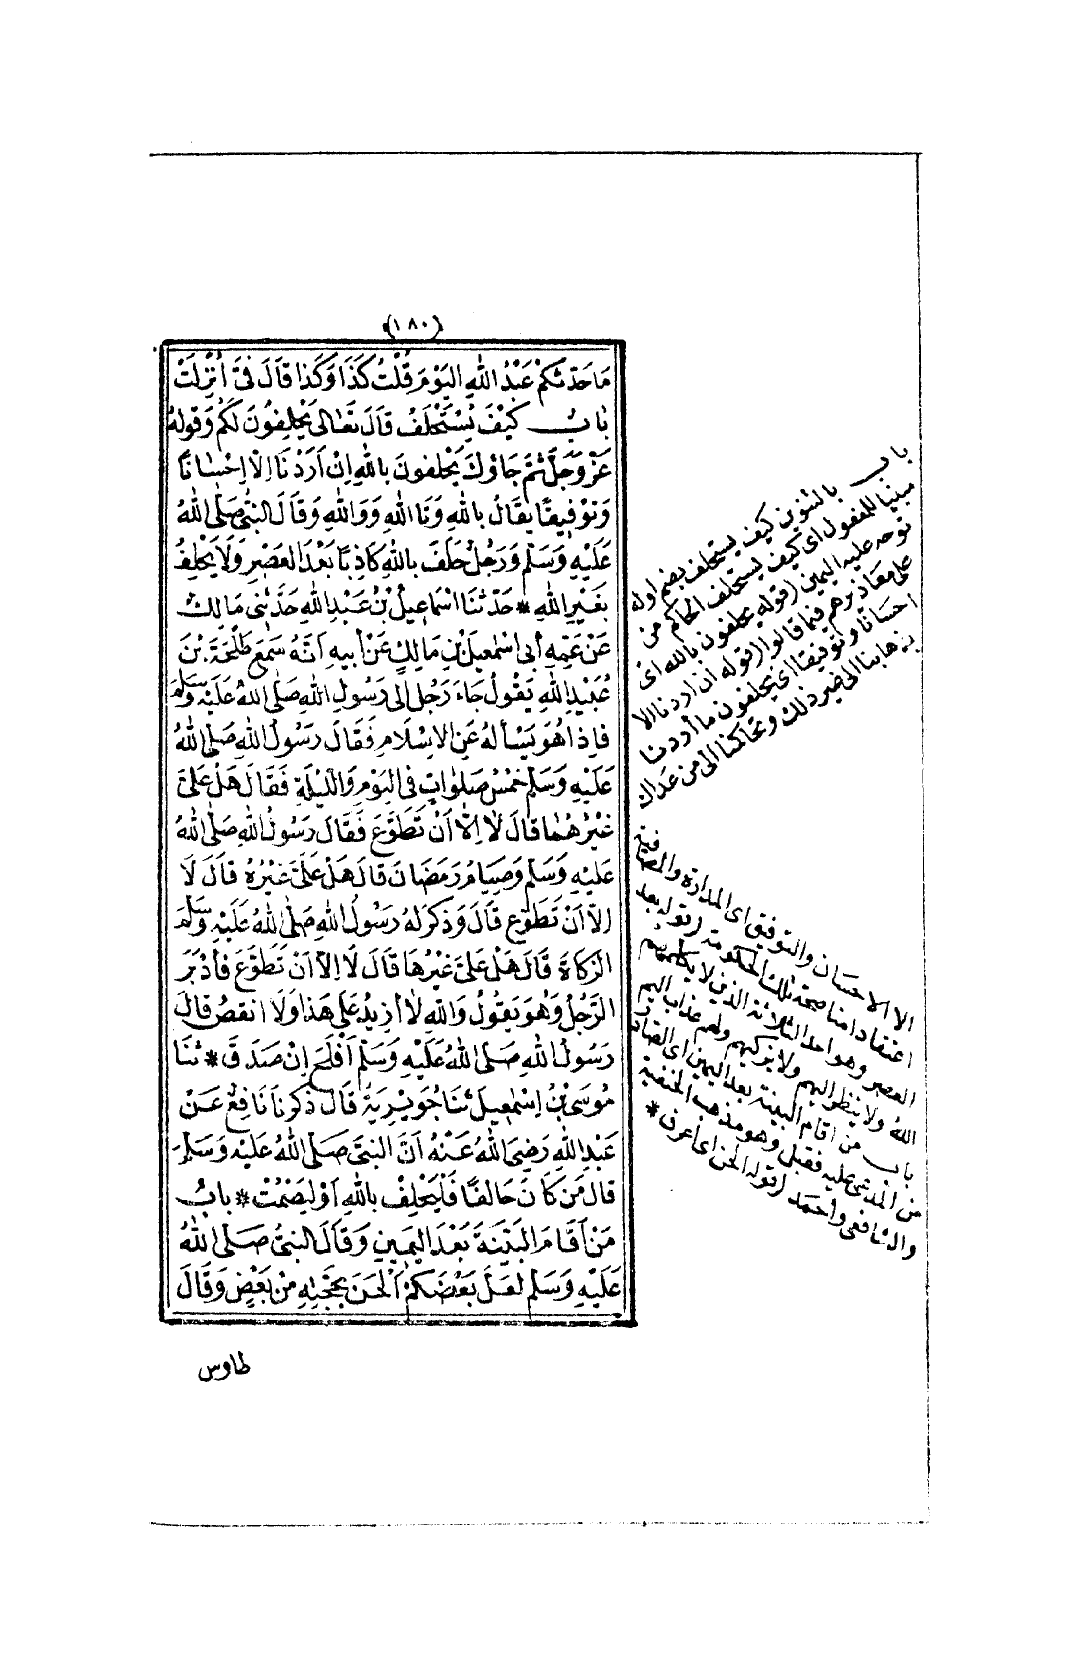 (١٨٠)
مَا حَدَّثَكُمْ عَبْدُ اللهِ اليَوْمَ قُلْتُ كَذَا وَكَذَا قَالَ فِيَّ أُنْزِلَتْ
بَابٌ كَيْفَ يُسْتَحْلَفُ قَالَ تَعَالَى يَحْلِفُونَ لَكُمْ وَقَوْلِهُ
عَزَّ وَجَلَّ ثُمَّ جَاؤُكَ يَحْلِفُونَ بِاللهِ إِنْ اَرَدْنَا اِلَّا اِحْسَانًا
وَتَوْفِيقًا يُقَالُ بِاللهِ وَتَا اللهِ وَوَاللهِ وَقَالَ النَّبِيُّ صَلَّى اللهُ
عَلَيْهِ وَسَلَّمَ وَرَجُلٌ حَلَفَ بِاللهِ كَاذِبًا بَعْدَ العَصْرِ وَلَا يُحْلَفُ
بِغَيْرِ اللهِ * حَدَّثَنَا اسْمَاعِيلُ بْنُ عَبْدِ اللهِ حَدَّثَنِي مَالِكٌ
عَنْ عَمِّهِ أَبِي اسْمٰعِيلَ بْنِ مَالِكٍ عَنْ أَبِيهِ أَنَّهُ سَمِعَ طَلْحَةَ بْنَ
عُبَيْدِ اللهِ يَقُولُ جَاءَ رَجُلٌ اِلَى رَسُولِ اللهِ صَلَّى اللهُ عَلَيْهِ وَسَلَّمَ
فَاِذَا هُوَ يَسْأَلُهُ عَنِ الاِسْلَامِ فَقَالَ رَسُولُ اللهِ صَلَّى اللهُ
عَلَيْهِ وَسَلَّمَ خَمْسُ صَلَوَاتٍ فِي اليَوْمِ وَاللَّيْلَةِ فَقَالَ هَلْ عَلَيَّ
غَيْرُهُمَا قَالَ لَا اِلَّا اَنْ تَطَوَّعَ فَقَالَ رَسُولُ اللهِ صَلَّى اللهُ
عَلَيْهِ وَسَلَّمَ وَصِيَامُ رَمَضَانَ قَالَ هَلْ عَلَيَّ غَيْرُهُ قَالَ لَا
اِلَّا اَنْ تَطَوَّعَ قَالَ وَذَكَرَ لَهُ رَسُولُ اللهِ صَلَّى اللهُ عَلَيْهِ وَسَلَّمَ
الزَّكَاةَ قَالَ هَلْ عَلَيَّ غَيْرُهَا قَالَ لَا اِلَّا اَنْ تَطَوَّعَ فَأَدْبَرَ
الرَّجُلُ وَهُوَ يَقُولُ وَاللهِ لَا أَزِيدُ عَلَى هَذَا وَلَا انْقُصُ قَالَ
رَسُولُ اللهِ صَلَّى اللهُ عَلَيْهِ وَسَلَّمَ أَفْلَحَ اِنْ صَدَقَ * ثَنَا
مُوسَى بْنُ اِسْمٰعِيلَ ثَنَا جُوَيْرِيَةُ قَالَ ذَكَرَ نَا نَافِعٌ عَنْ
عَبْدِ اللهِ رَضِيَ اللهُ عَنْهُ اَنَّ النَّبِيَّ صَلَّى اللهُ عَلَيْهِ وَسَلَّمَ
قَالَ مَنْ كَانَ حَالِفًا فَلْيَحْلِفْ بِاللهِ اَوْ لِيَصْمُتْ * بَابُ
مَنْ اَقَامَ البَيِّنَةَ بَعْدَ اليَمِينِ وَقَالَ النَّبِيُّ صَلَّى اللهُ
عَلَيْهِ وَسَلَّمَ لَعَلَّ بَعْضَكُمْ اَلْحَنُ بِحُجَّتِهِ مِنْ بَعْضٍ وَقَالَ
طاوس
باب بالتنوين كيف يستحلف بضم اوله
مبنيا للمفعول اى كيف يستحلف الحاكم من
توجه عليه اليمين (قوله يحلفون بالله اى
على معاذيرهم فيما قالوا (قوله أن اردنا الا
احسانا وتوفيقا اى يحلفون ما أردنا
بذهابنا الى غيرذلك وتحاكمنا الى من عداك
الا الاحسان والتوفيق اى المدارة والمصانعة
اعتقادا منا صحة تلك الحكومة (قوله بعد
العصر وهو احد الثلاثة الذين لا يكلمهم
الله ولا ينظر اليهم ولا يزكيهم ولهم عذاب اليم
باب من اقام البينة بعد اليمين اى الصادرة
من المدعى عليه فقبل وهو مذهب الحنفية
والشافعى وأحمد (قوله الحن اى اعرف *